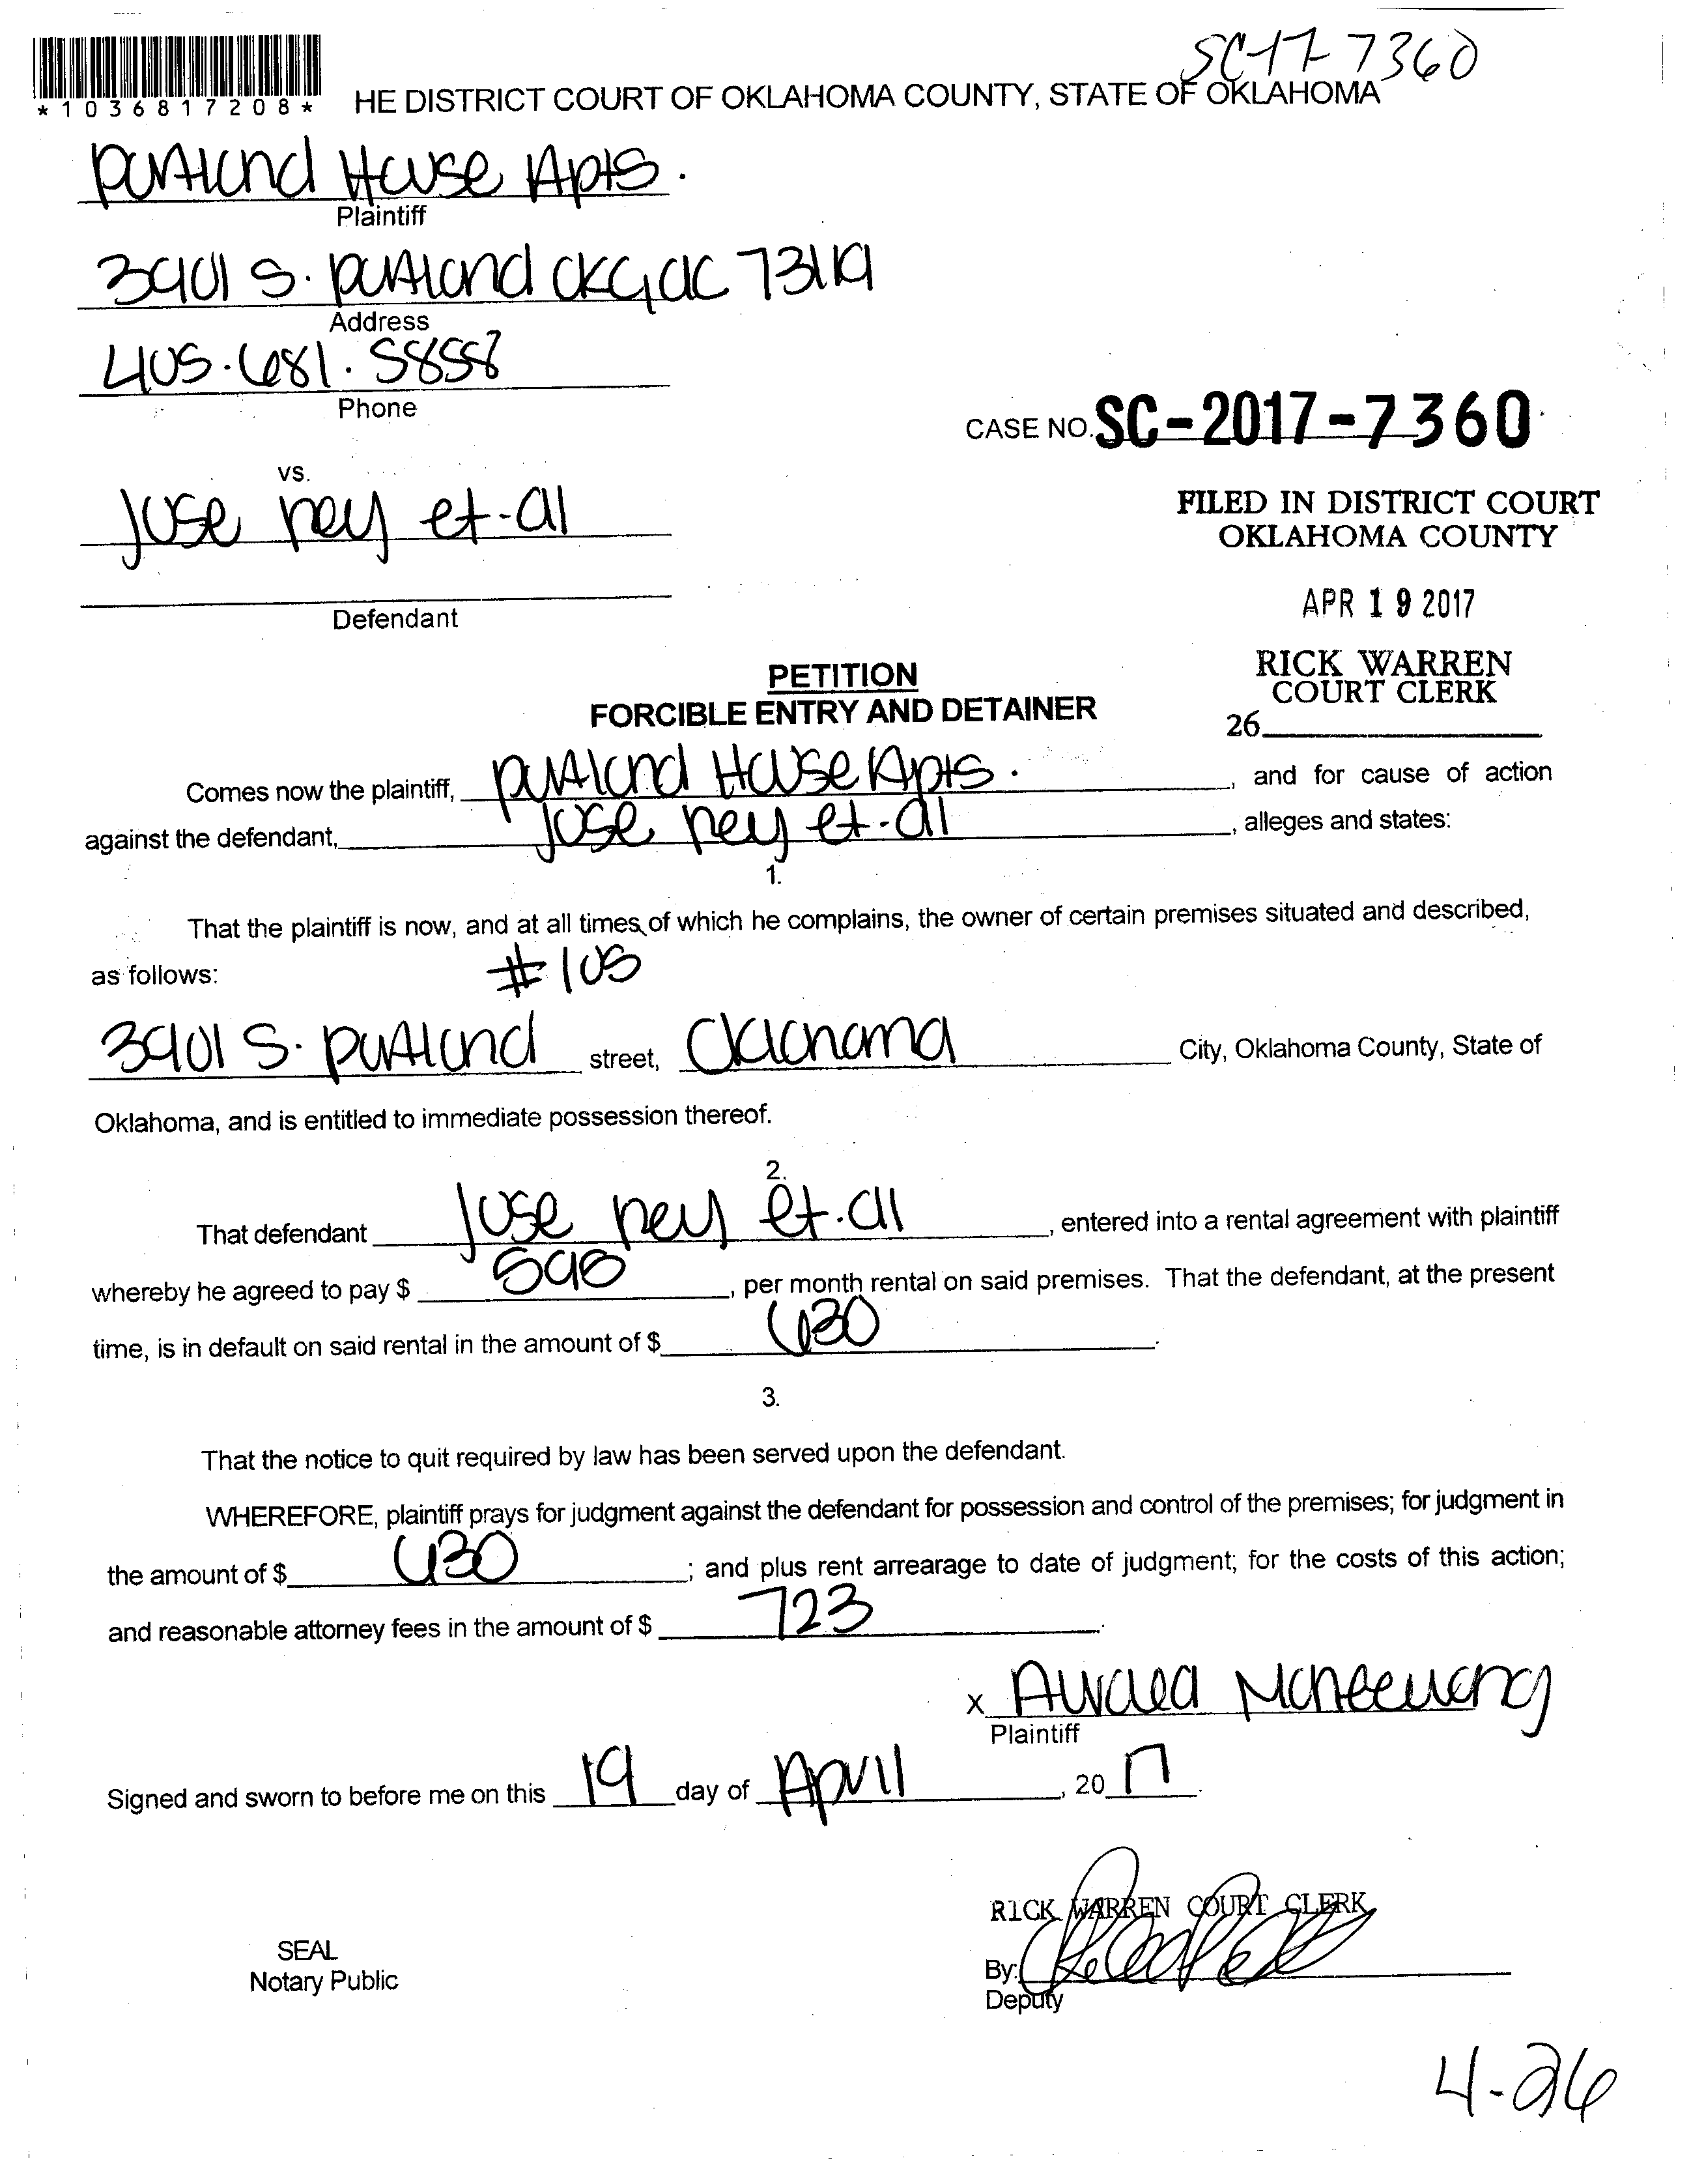 SC-17-7360
*1036817208*
HE DISTRICT COURT OF OKLAHOMA COUNTY, STATE OF OKLAHOMA
Portland House Apts.
Plaintiff
3901 S. Portland OKC, OK 73119
Address
405.681.5858
Phone
CASE NO. SC-2017-7360
vs.
Jose ney et-al
FILED IN DISTRICT COURT
OKLAHOMA COUNTY
Defendant
APR 19 2017
RICK WARREN
COURT CLERK
26
PETITION
FORCIBLE ENTRY AND DETAINER
Comes now the plaintiff, Portland House Apts. , and for cause of action
against the defendant, Jose ney et-al , alleges and states:
1.
That the plaintiff is now, and at all times of which he complains, the owner of certain premises situated and described,
as follows: #105
3901 S. Portland street, Oklahoma City, Oklahoma County, State of
Oklahoma, and is entitled to immediate possession thereof.
2.
That defendant Jose ney et.al , entered into a rental agreement with plaintiff
whereby he agreed to pay $ , per month rental on said premises. That the defendant, at the present
time, is in default on said rental in the amount of $ 630 .
3.
That the notice to quit required by law has been served upon the defendant.
WHEREFORE, plaintiff prays for judgment against the defendant for possession and control of the premises; for judgment in
the amount of $ 630 ; and plus rent arrearage to date of judgment; for the costs of this action;
and reasonable attorney fees in the amount of $ 723 .
x
Plaintiff
Signed and sworn to before me on this 19 day of April , 20 17 .
RICK WARREN COURT CLERK
SEAL
Notary Public
By:
Deputy
4-26